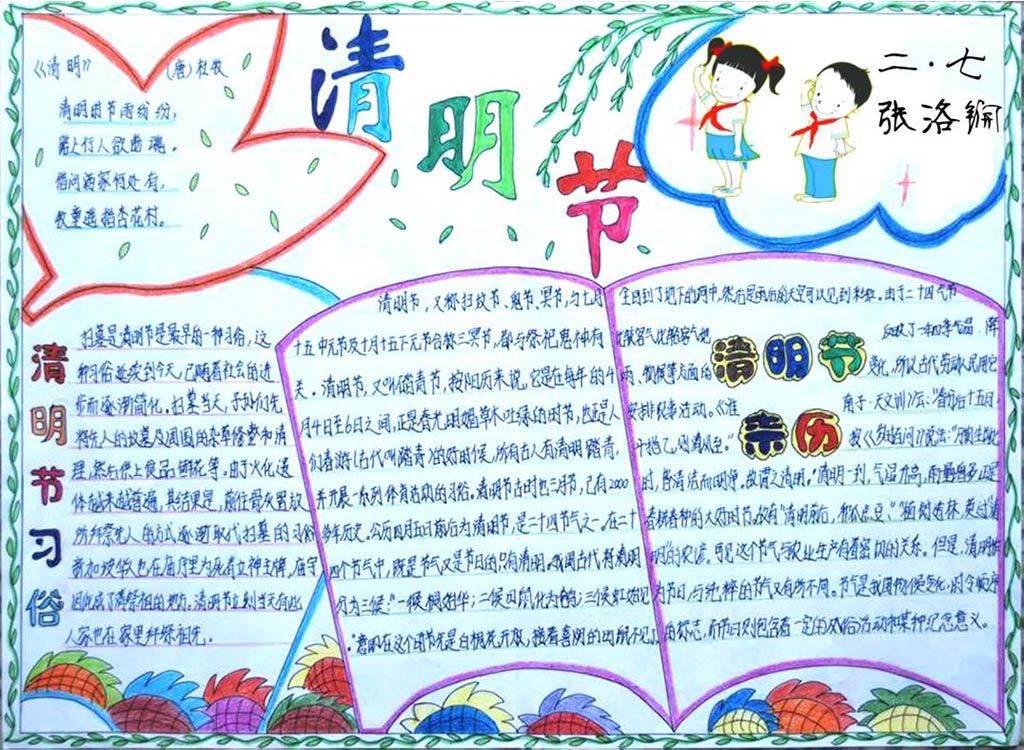 清明节
《清明》 (唐)杜牧
清明时节雨纷纷,
路上行人欲断魂。
借问酒家何处有,
牧童遥指杏花村。
二·七
张洛
清明节习俗
扫墓是清明节最早的一种习俗,这
种习俗延续到今天,已随着社会的进
步而逐渐简化。扫墓当天,子孙们先
将先人的坟墓及周围的杂草修整和清
理,然后供上食品鲜花等。由于火化遗
体越来越普遍,其结果是,前往骨灰置放
所拜祭先人的方式逐渐取代扫墓的习俗
新加坡华人也在庙宇里为死者立神主牌,庙宇
因此成了清祭祖的地方。清明节
人家也在家里拜祭祖先。
清明节,又称扫坟节、鬼节、冥节,与七月
十五中元节及十月十五下元节合称三冥节,都与祭祀鬼神有
关。清明节,又叫踏青节,按阳历来说,它是在每年的4
月4日至6日之间,正是春光明媚草木吐绿的时节,也正是人
们春游(古代叫踏青)的好时候,所有古人有清明踏青,
并开展一系列体育活动的习俗。清明节古时也三月节,已有2000
多年历史。公历四月五日前后为清明节,是二十四节气之一。在二十
四个节气中,既是节气又是节日的只有清明。我国古代将清明
分为三候:“一候桐始华;二候田鼠化为鹌;三候虹始见
”意即在这个时节先是白桐花开放,接着喜阴的田鼠不见了
清明节亲历
全回到了地下的洞中,然后是雨后的天空可以见到彩虹。由于二十四气节
比较客气
变化,所以古代劳动人民用它
安排农事活动。《淮
南子·天文训》云:“春分后十五日,
斗指乙,则清风至。”
按《岁时百问》说法:“万物生长此
时,皆清洁而明净。故谓之清明。”清明一到,气温升高,雨量增多,正是
春耕春种的大好时节。故有“清明前后,种瓜点豆”、“植树造林,莫过清
明”的农谚。可见这个节气与农业生产有着密切的关系。但是,清明作
为节日,与纯粹的节气又有所不同。节气是我国物候变化、时令顺序
的标志,而节日则包含着一定的风俗活动和某种纪念意义。